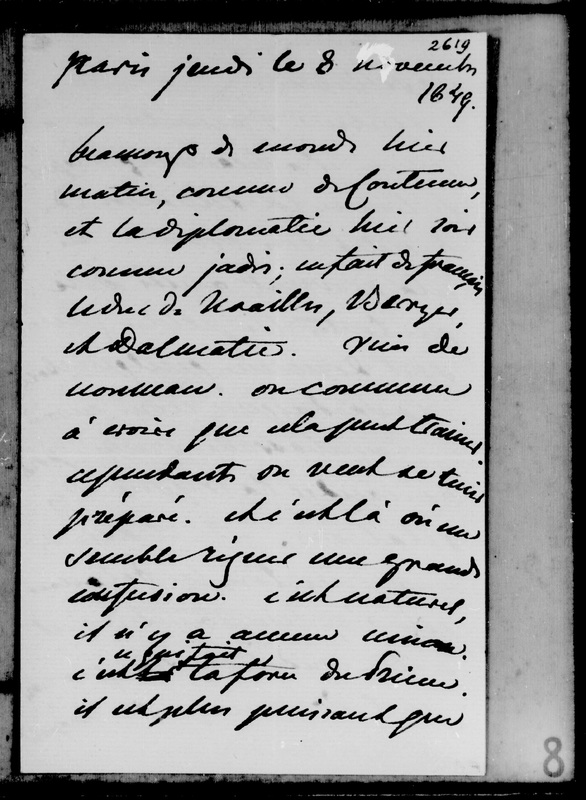 2619
Paris jeudi le 8 novembre
1849.
beaucoup de monde hier
matin, comme de coutume,
et la diplomatie hier soir
comme jadis; en fait de français
le duc de Noailles, Berryer,
et Dalmatie. rien de
nouveau. on commence
à croire que cela peut trainer
cependant on veut se tenir
préparé. et c'est là où me
semble régner une grande
confusion. c'est naturel,
il n'y a aucune union.
ce qui fait
c'est la force du Prince.
il est plus puissant que
8